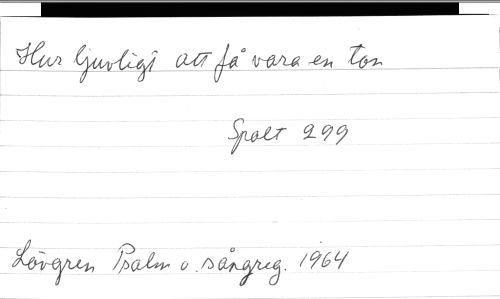 Hur ljuvligt att få vara en ton
Spalt 299
Lövgren Psalm o. sångreg. 1964